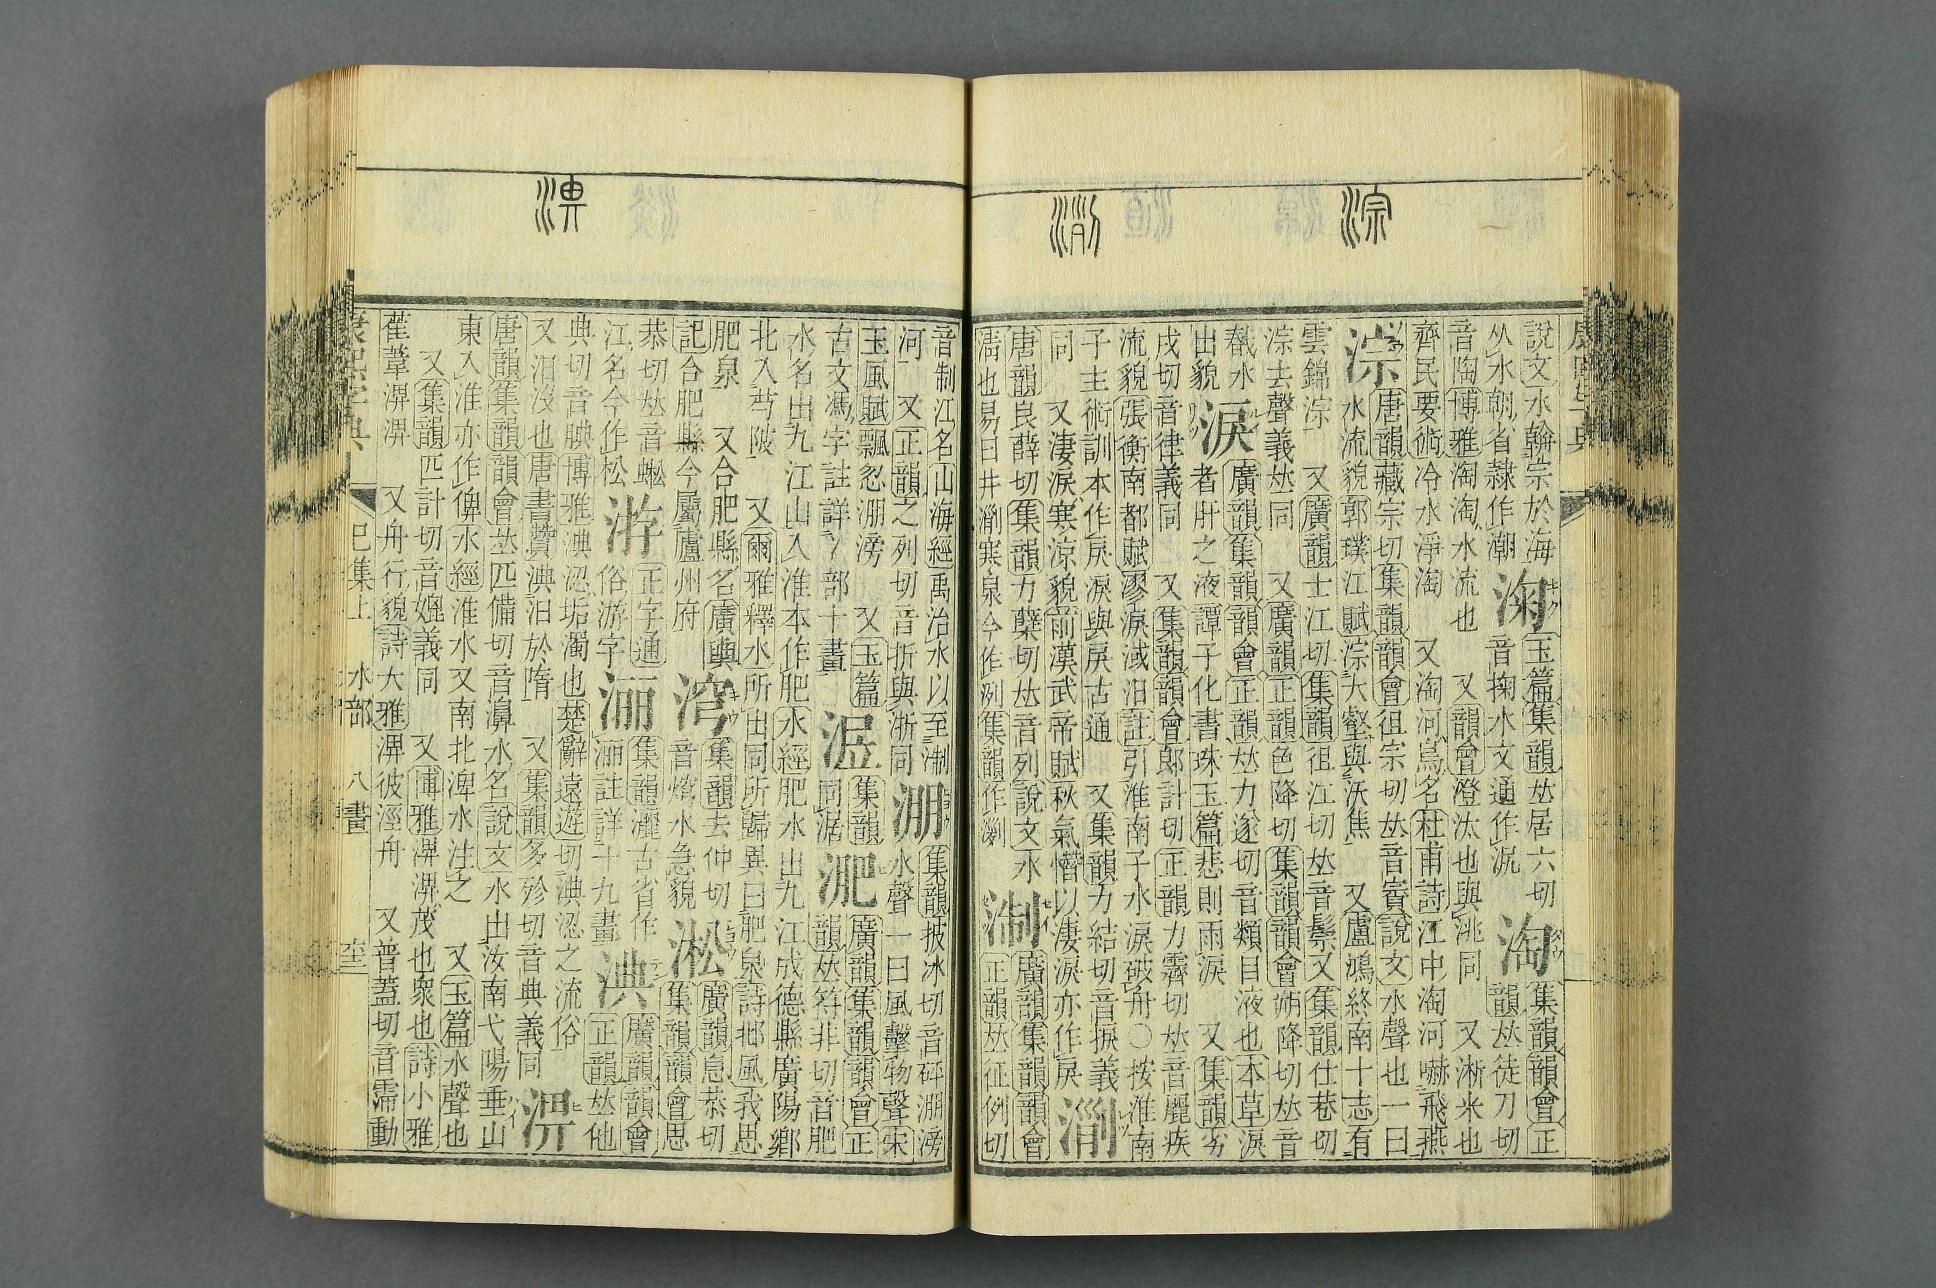 淙
說文水輸宗於海 玉篇集韻𠀤居六切 集韻韻會正
从水朝省隸作潮 淗 音掬水文通作泦 淘 韻𠀤徒刀切
音陶博雅淘淘水流也 又韻會澄汰也與洮同 又淅米也
齊民要術冷水淨淘 又淘河鳥名杜甫詩江中淘河嚇飛燕
淙 唐韻藏宗切集韻韻會徂宗切𠀤音賨說文水聲也一曰
水流貌郭璞江賦淙大壑與沃焦 又盧鴻終南十志有
雲錦淙 又廣韻士江切集韻徂江切𠀤音鬃又集韻仕巷切
淙去聲義𠀤同 又廣韻正韻色降切集韻韻會朔降切𠀤音
淚 廣韻集韻韻會正韻𠀤力遂切音類目液也本草淚
出貌 者肝之液譚子化書珠玉篇悲則雨淚 又集韻劣
戌切音律義同 又集韻韻會郎計切正韻力霽切𠀤音麗疾
流貌張衡南都賦漻淚淢汨註引淮南子水淚破舟〇按淮南
子主術訓本作戾淚與戾古通 又集韻力結切音捩義
同 又淒淚寒涼貌前漢武帝賦秋氣憯以淒淚亦作戾 𣸣
唐韻良薛切集韻力櫱切𠀤音列說文水 淛 廣韻集韻韻會
淸也易曰井𣸣寒泉今作洌集韻作㴝 正韻𠀤征例切
淟
音制江名山海經禹治水以至淛 淜 集韻披冰切音砯淜滂
河 又正韻之列切音折與浙同 水聲一曰風擊物聲宋
玉風賦飄忽淜滂 又玉篇 集韻 廣韻集韻韻會正
古文馮字註詳馬部十畫 同涺 淝 韻𠀤符非切音肥
水名出九江山入淮本作肥水經肥水出九江成德縣廣陽鄕
北入芍陂 又爾雅釋水所出同所歸異曰肥泉詩邶風我思
肥泉 又合肥縣名廣輿 集韻去仲切 廣韻息恭切
記合肥縣今屬廬州府 音焪水急貌 淞 集韻韻會思
恭切𠀤音蜙 正字通 集韻灑古省作 廣韻韻會
江名今作松 㳺 俗游字 註詳十九畫 淟 正韻𠀤他
典切音腆博雅淟涊垢濁也楚辭遠遊切淟涊之流俗
又汨沒也唐書贊淟汨於隋 又集韻多殄切音典義同 淠
唐韻集韻韻會𠀤匹備切音濞水名說文水出汝南弋陽垂山
東入淮亦作俾水經淮水又南北渒水注之 又玉篇水聲也
又集韻匹計切音媲義同 又博雅淠淠茂也衆也詩小雅
萑葦淠淠 又舟行貌詩大雅淠彼涇舟 又普蓋切音霈動
康熙字典 巳集上 水部 八畫